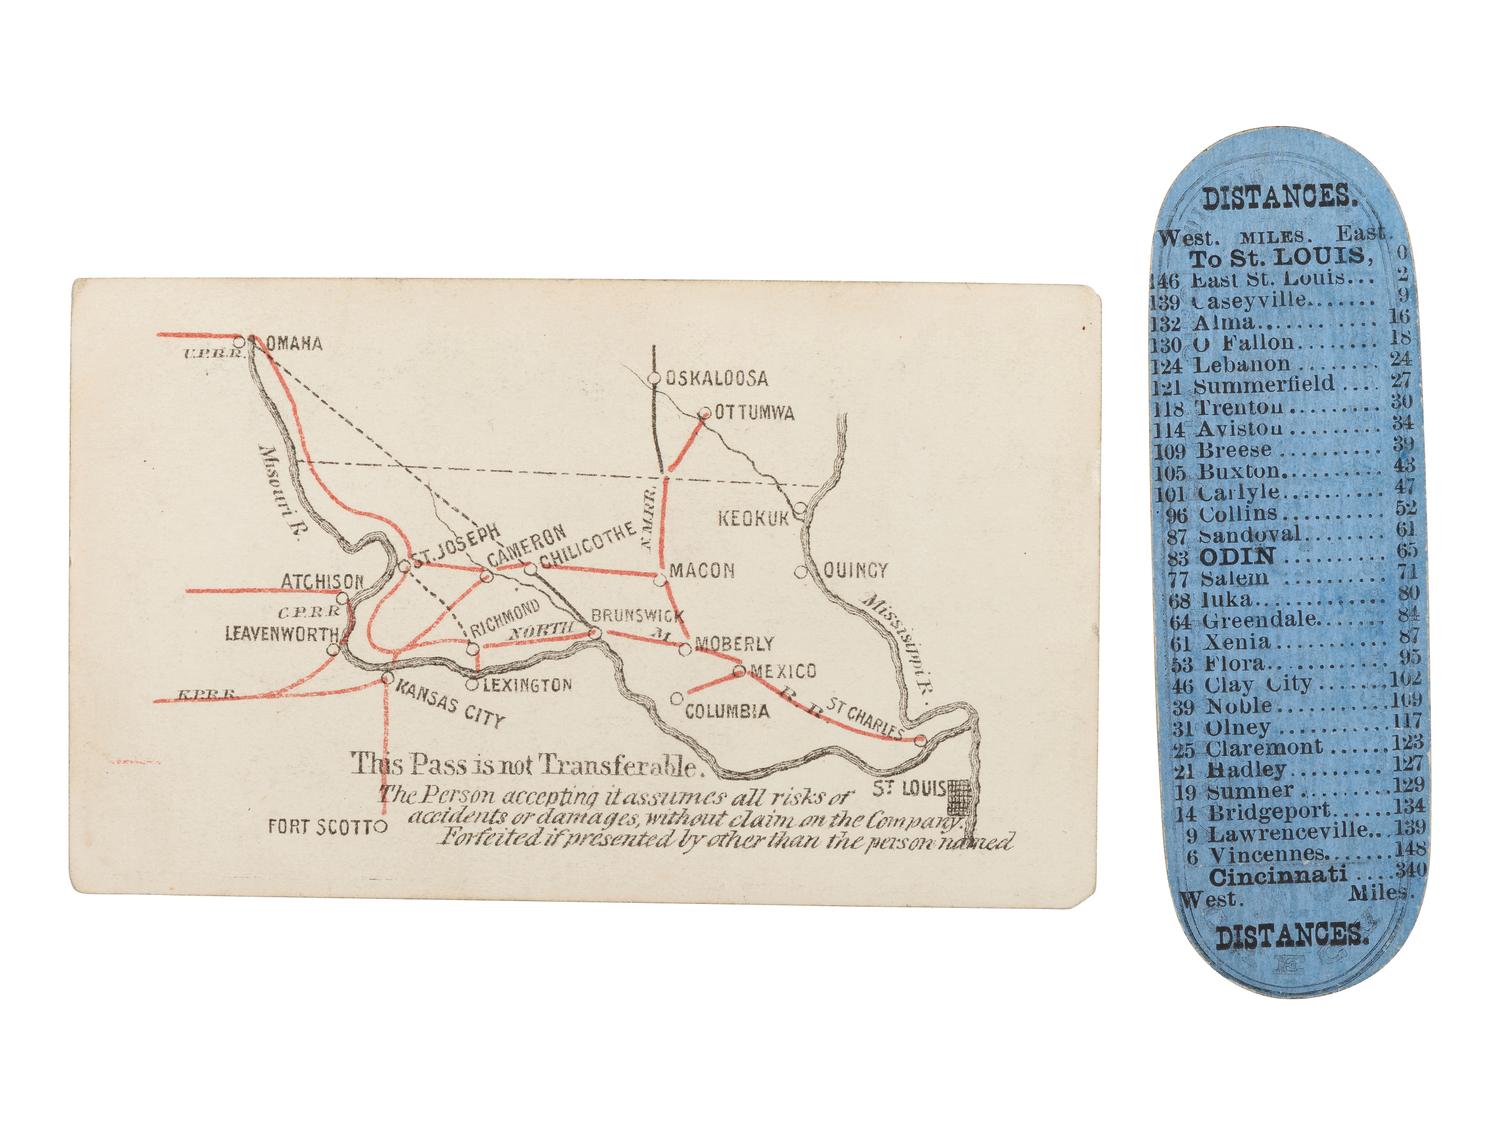 OMAHA
U.P.R.R.
Misouri R.
OSKALOOSA
OTTUMWA
N.M.R.R.
KEOKUK
ST. JOSEPH
CAMERON
CHILICOTHE
MACON
QUINCY
ATCHISON
C.P.R.R
LEAVENWORTH
RICHMOND
BRUNSWICK
NORTH
M.
MOBERLY
Mississippi R.
K.P.R.R.
KANSAS CITY
LEXINGTON
MEXICO
COLUMBIA
R. R.
ST CHARLES
This Pass is not Transferable.
ST LOUIS
The Person accepting it assumes all risks of
accidents or damages, without claim on the Company.
FORT SCOTT
Forfeited if presented by other than the person named
DISTANCES.
West. MILES. East.
To St. LOUIS, 0
146 East St. Louis... 2
139 Caseyville....... 9
132 Alma............ 16
130 O Fallon........ 18
124 Lebanon ........ 24
121 Summerfield .... 27
118 Trenton ......... 30
114 Aviston ......... 34
109 Breese .......... 39
105 Buxton.......... 43
101 Carlyle.......... 47
96 Collins........... 52
87 Sandoval......... 61
83 ODIN ........... 65
77 Salem ........... 71
68 Iuka.............. 80
64 Greendale........ 84
61 Xenia............ 87
53 Flora............. 95
46 Clay City .......102
39 Noble............109
31 Olney ...........117
25 Claremont ......123
21 Hadley..........127
19 Sumner .........129
14 Bridgeport......134
9 Lawrenceville...139
6 Vincennes.......148
Cincinnati ....340
West. Miles.
DISTANCES.